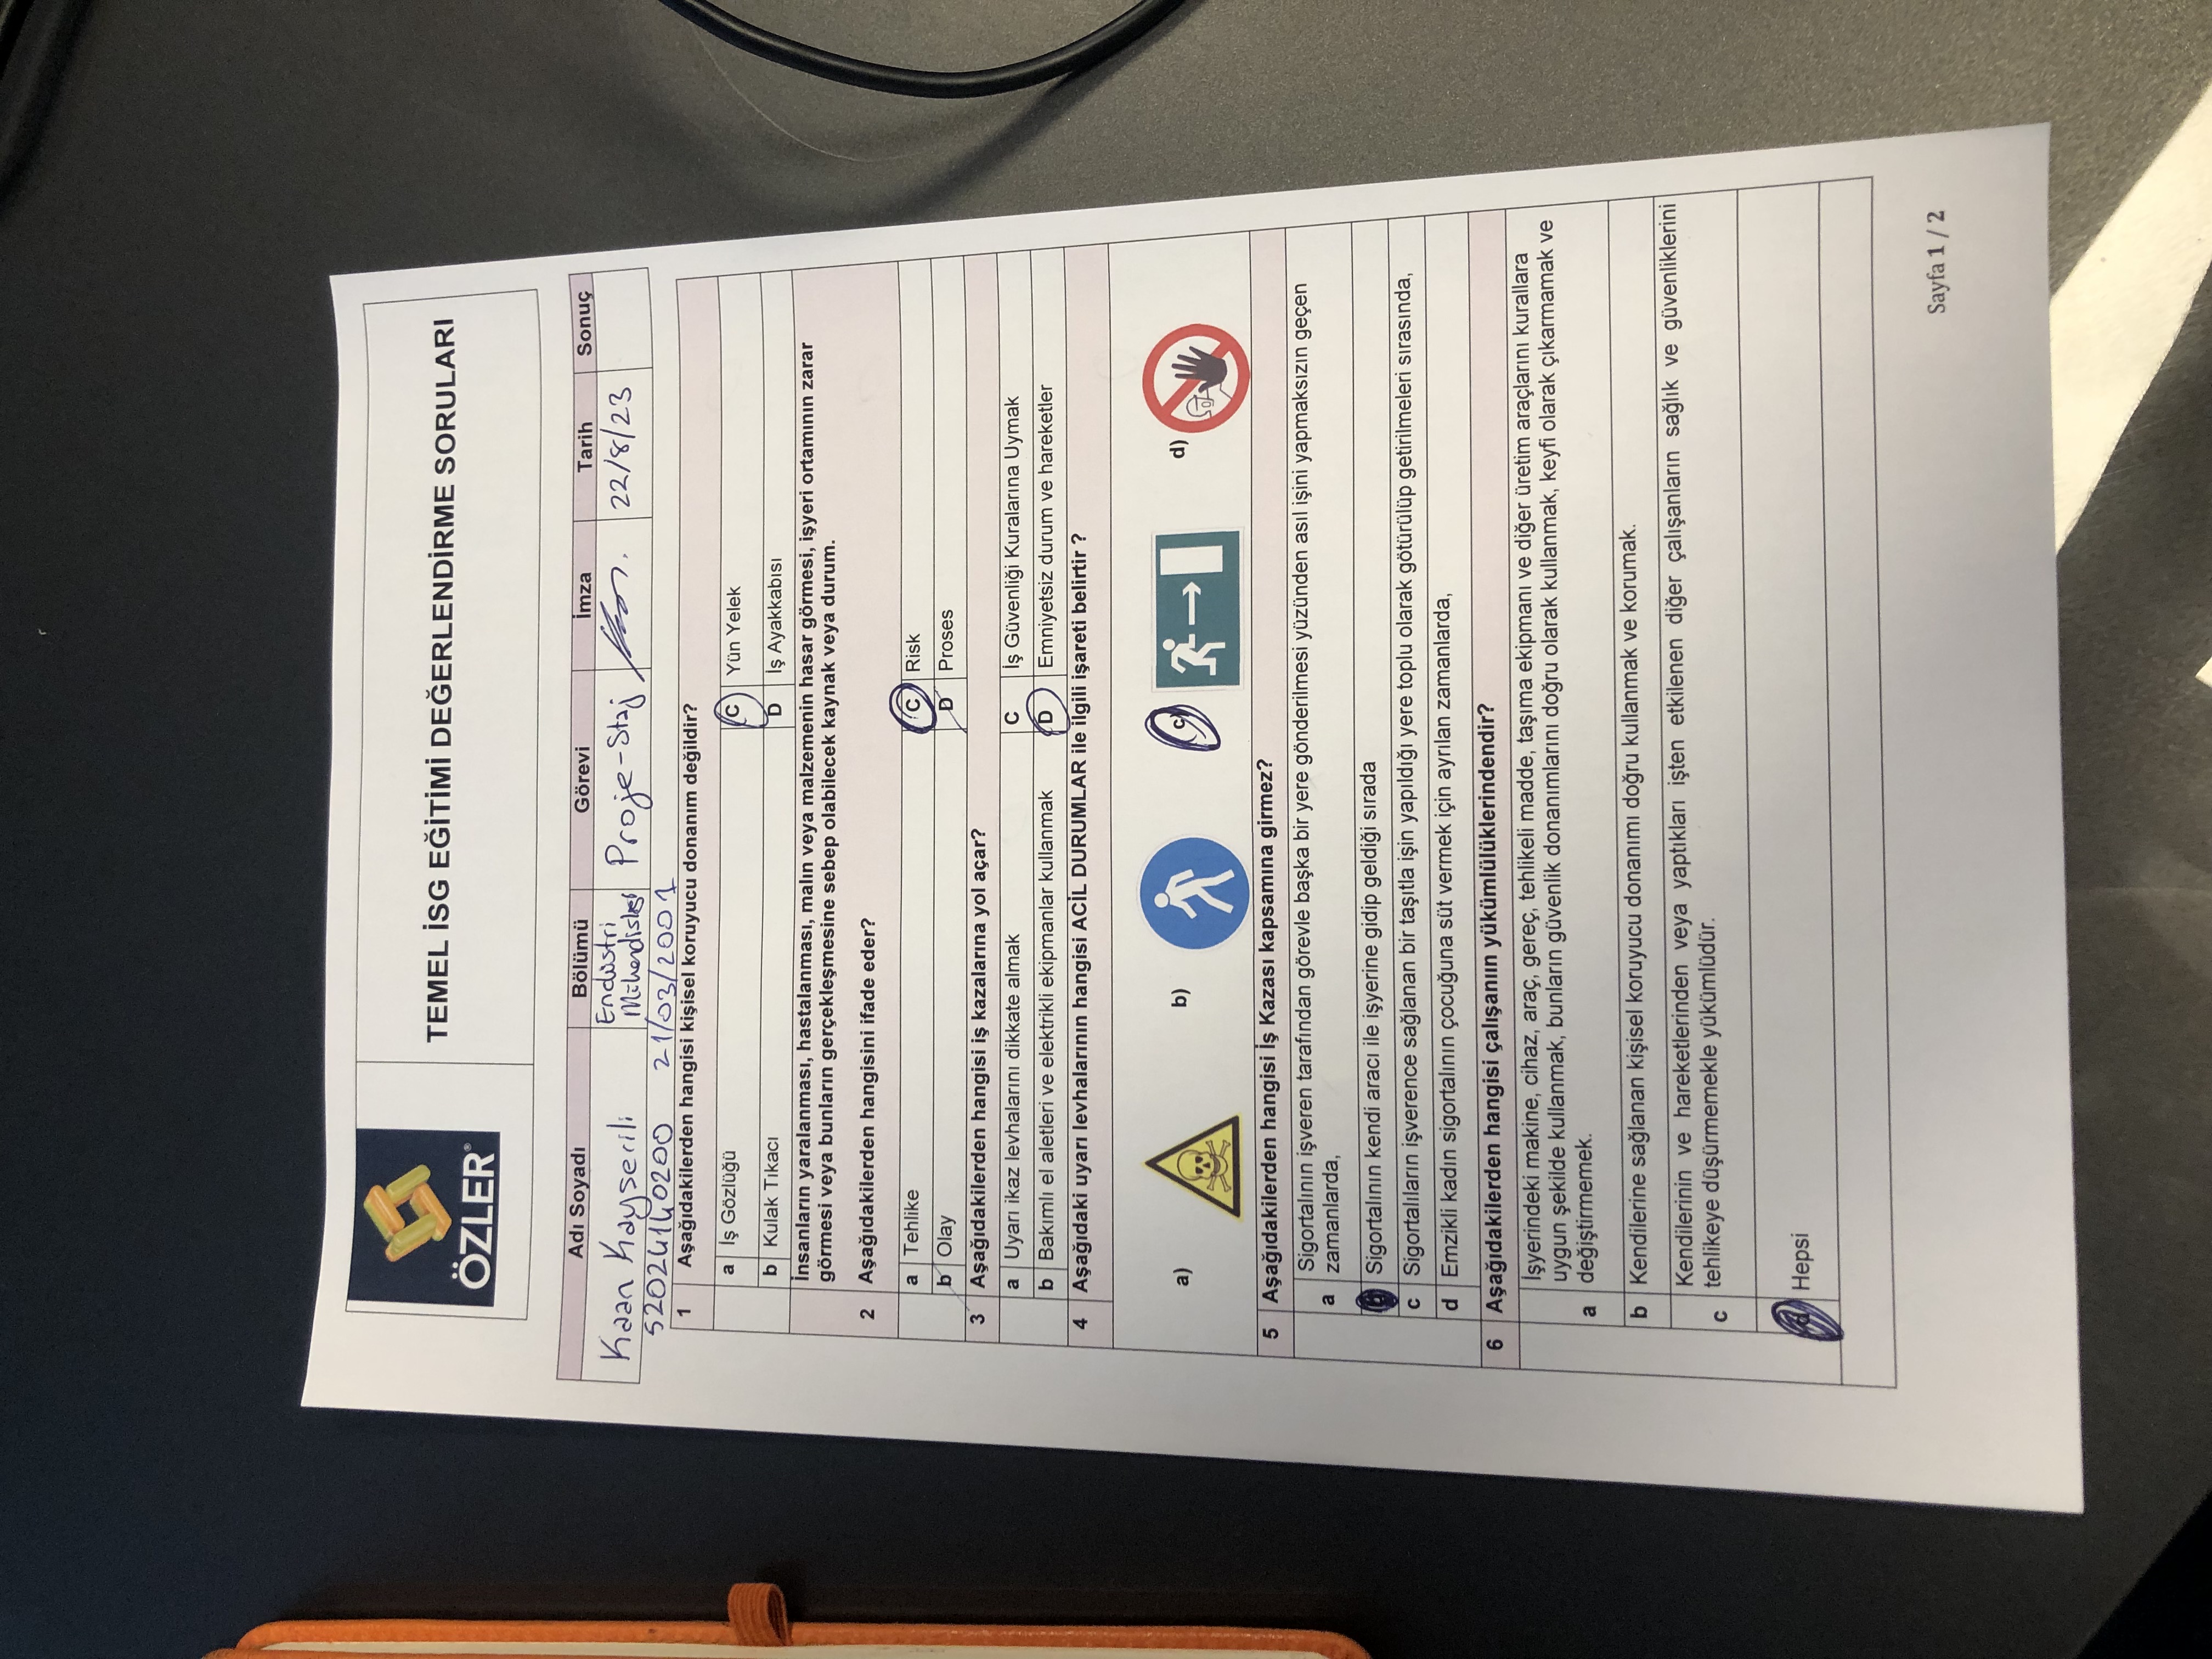 ÖZLER®
TEMEL İSG EĞİTİMİ DEĞERLENDİRME SORULARI
Adı Soyadı Bölümü Görevi İmza Tarih Sonuç
Kaan Kayserili Endüstri Mühendisliği Proje-Staj 22/8/23
52024140200 21/03/2001
1 Aşağıdakilerden hangisi kişisel koruyucu donanım değildir?
a İş Gözlüğü C Yün Yelek
b Kulak Tıkacı D İş Ayakkabısı
İnsanların yaralanması, hastalanması, malın veya malzemenin hasar görmesi, işyeri ortamının zarar
görmesi veya bunların gerçekleşmesine sebep olabilecek kaynak veya durum.
2 Aşağıdakilerden hangisini ifade eder?
a Tehlike C Risk
b Olay D Proses
3 Aşağıdakilerden hangisi iş kazalarına yol açar?
a Uyarı ikaz levhalarını dikkate almak C İş Güvenliği Kuralarına Uymak
b Bakımlı el aletleri ve elektrikli ekipmanlar kullanmak D Emniyetsiz durum ve hareketler
4 Aşağıdaki uyarı levhalarının hangisi ACİL DURUMLAR ile ilgili işareti belirtir ?
a) b) c) d)
5 Aşağıdakilerden hangisi İş Kazası kapsamına girmez?
a Sigortalının işveren tarafından görevle başka bir yere gönderilmesi yüzünden asıl işini yapmaksızın geçen
zamanlarda,
b Sigortalının kendi aracı ile işyerine gidip geldiği sırada
c Sigortalıların işverence sağlanan bir taşıtla işin yapıldığı yere toplu olarak götürülüp getirilmeleri sırasında,
d Emzikli kadın sigortalının çocuğuna süt vermek için ayrılan zamanlarda,
6 Aşağıdakilerden hangisi çalışanın yükümlülüklerindendir?
a İşyerindeki makine, cihaz, araç, gereç, tehlikeli madde, taşıma ekipmanı ve diğer üretim araçlarını kurallara
uygun şekilde kullanmak, bunların güvenlik donanımlarını doğru olarak kullanmak, keyfi olarak çıkarmamak ve
değiştirmemek.
b Kendilerine sağlanan kişisel koruyucu donanımı doğru kullanmak ve korumak.
c Kendilerinin ve hareketlerinden veya yaptıkları işten etkilenen diğer çalışanların sağlık ve güvenliklerini
tehlikeye düşürmemekle yükümlüdür.
d Hepsi
Sayfa 1 / 2